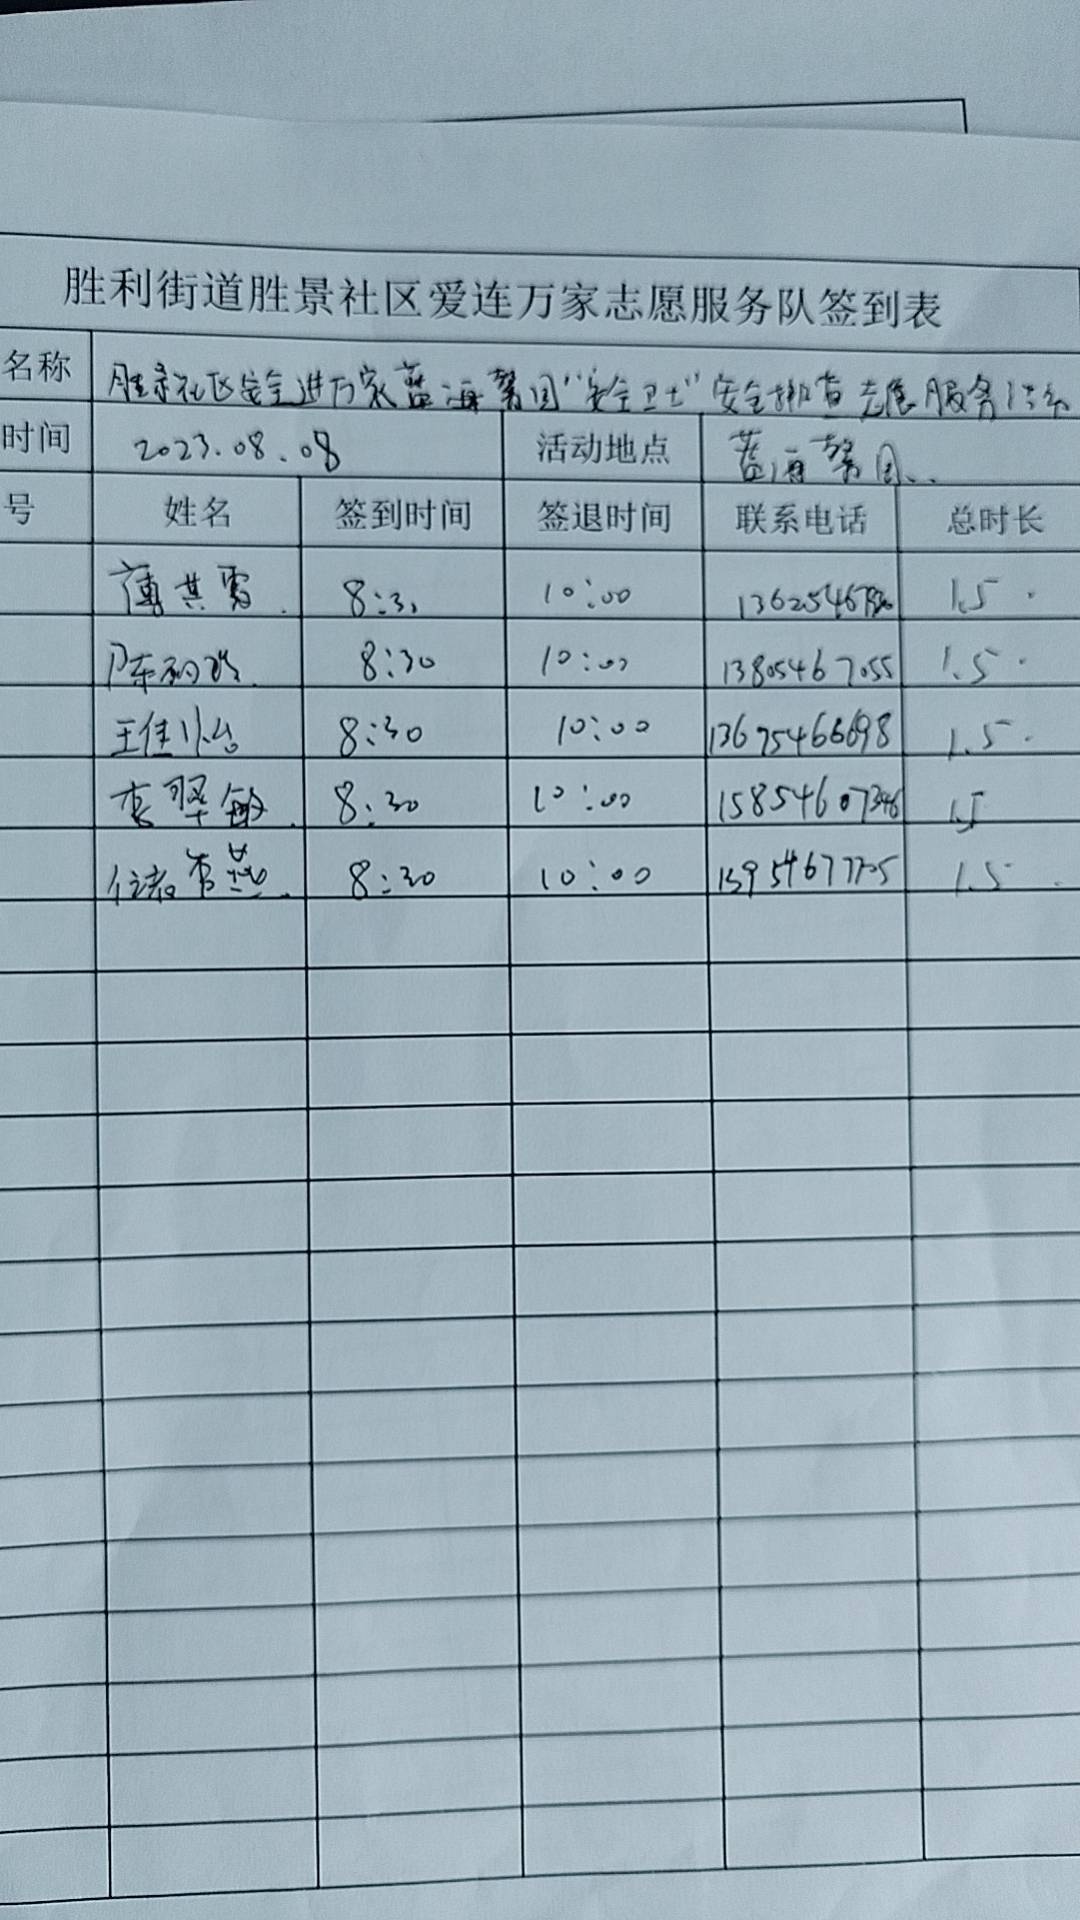 胜利街道胜景社区爱连万家志愿服务队签到表
名称 胜景社区安全进万家蓝海馨园“安全卫士”安全排查志愿服务活动
时间 2023.08.08 活动地点 蓝海馨园
号 姓名 签到时间 签退时间 联系电话 总时长
薄其雪 8:30 10:00 1.5
陈 8:30 10:00 13805467055 1.5
王佳怡 8:30 10:00 13675466698 1.5
李翠敏 8:30 10:00 1.5
8:30 10:00 1.5